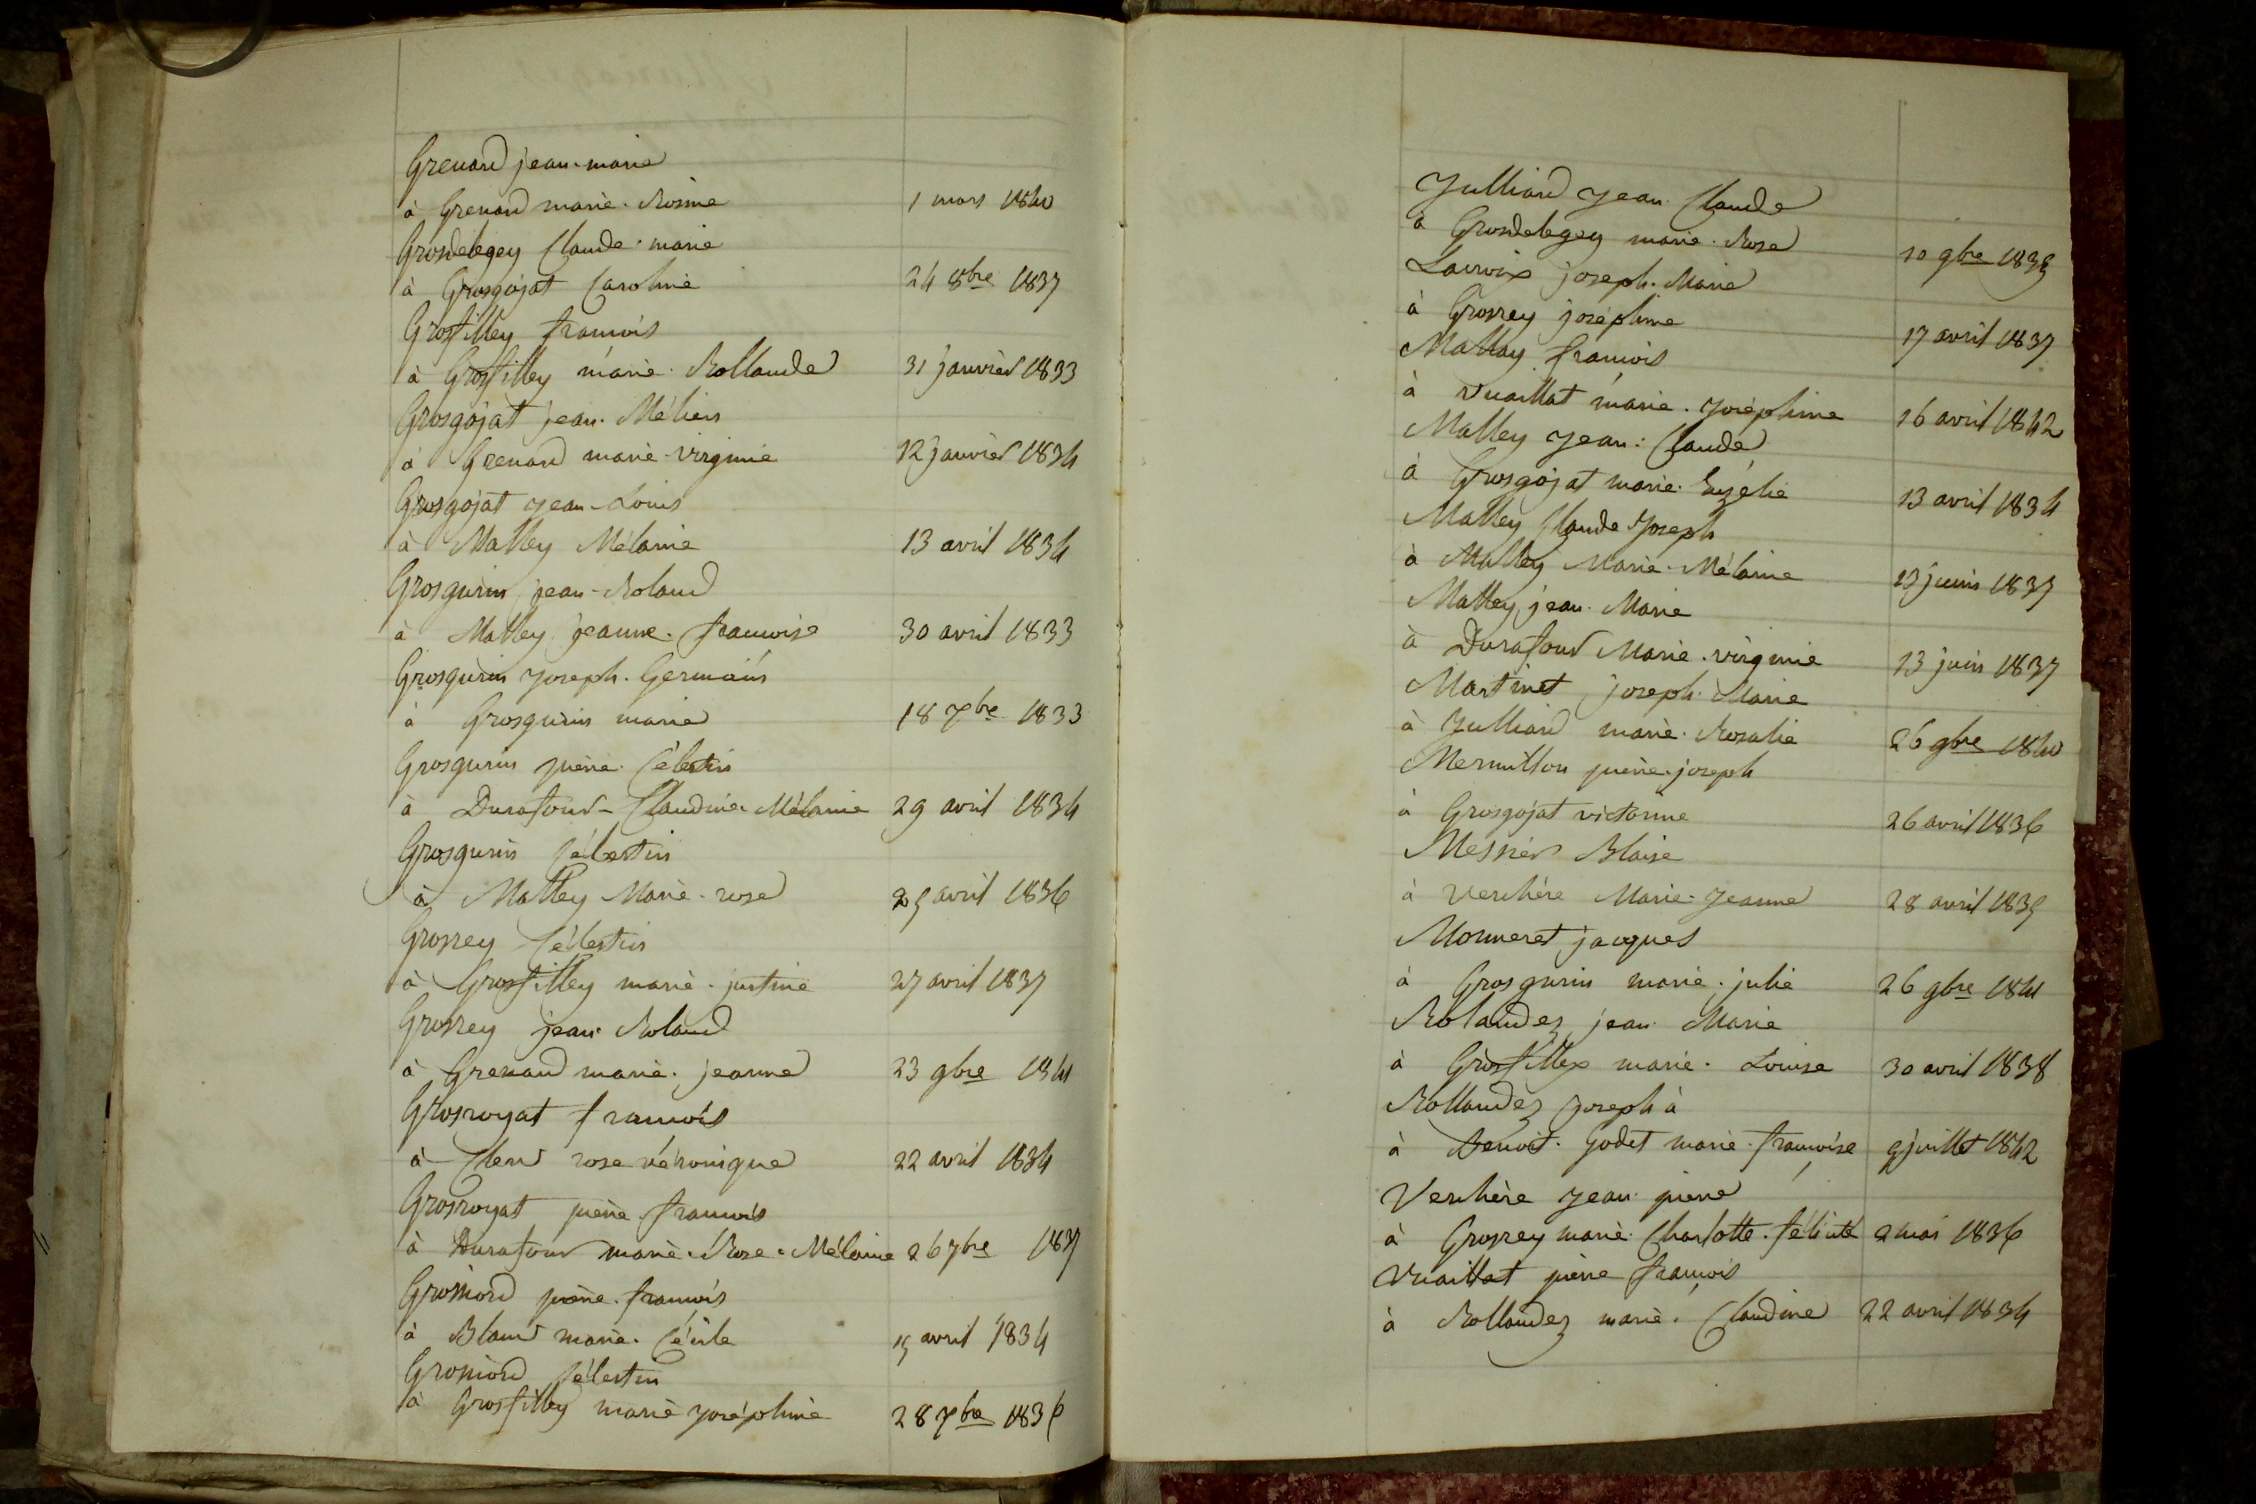 Grenard jean-marie
à Grenard marie. Rosine 1 mars 1840
Grosdelegey Claude. marie
à Grosgojat Caroline 24 8bre 1837
Grosfilley francois
à Grosfilley marie. Rollande 31 janvier 1833
Grosgojat jean. Mélien
à Grenard marie-virginie 12 janvier 1834
Grosgojat jean-Louis
à Matley Mélanie 13 avril 1834
Grosgurin jean-Roland
à Matley jeanne. francoise 30 avril 1833
Grosgurin joseph. Germain
à Grosgurin marie 18 7bre 1833
Grosgurin pierre. Célestin
à Durafour-Claudine Mélanie 29 avril 1834
Grosgurin Célestin
à Matley Marie-rose 25 avril 1836
Grosrey Célestin
à Grosfilley marie-justine 27 avril 1837
Grosrey jean Roland
à Grenard marie. jeanne 23 9bre 1841
Grosroyat francois
à Clerc rose véronique 22 avril 1834
Grosroyat pierre francois
à Durafour marie. Rose. Mélanie 26 7bre 1837
Grosniord pierre. francois
à Blanc marie. Cécile 15 avril 1834
Grosniord Célestin
à Grosfilley marie joséphine 28 7bre 1836
Julliard Jean Claude
à Grosdelegey marie. Rose 10 9bre 1835
Lacroix joseph. Marie
à Grosrey joséphine 17 avril 1837
Mattay francois
à Vuaillat marie. Joséphine 16 avril 1842
Malley Jean: Claude
à Grosgojat marie. 13 avril 1834
Matley Claude Joseph
à Matley Marie-Mélanie 13 juin 1837
Matley jean. Marie
à Durafour Marie. virginie 13 juin 1837
Martinet joseph Marie
à Julliard marie. Rosalie 26 9bre 1840
Mermillon pierre. joseph
à Grosgojat victorine 26 avril 1836
Messier Blaise
à Verchère Marie-Jeanne 28 avril 1835
Monneret jacques
à Grosgurin marie. julie 26 9bre 1841
Rolandez jean Marie
à Grosfillex marie. Louise 30 avril 1838
Rollandez joseph à
à Benoit. Godet marie. francoise 9 juillet 1842
Verchère Jean pierre
à Grosrey marie Charlotte. félicité 2 mai 1836
Vuaillat pierre francois
à Rollandez marie. Claudine 22 avril 1834